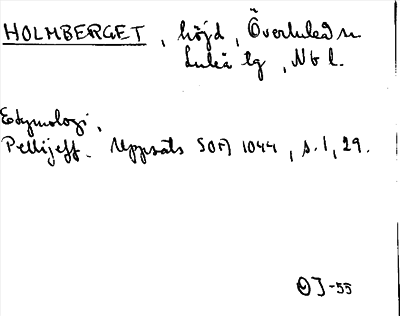 HOLMBERGET, höjd, Överluleå sn
Luleå tg, Nbl.
Etymologi,
Pellijeff. Uppsats SOFI 1044, s. 1, 29.
OJ-55